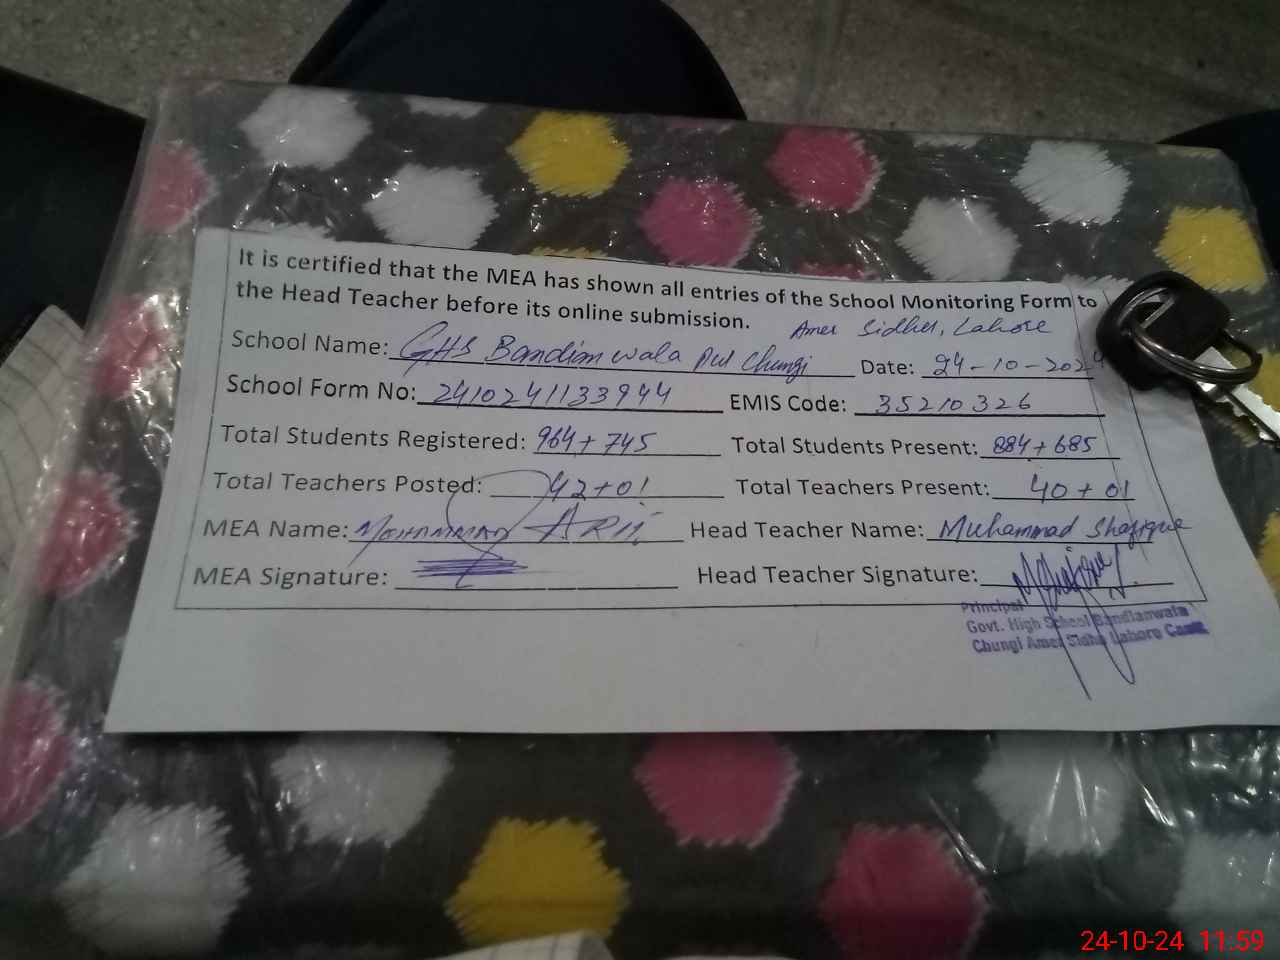 It is certified that the MEA has shown all entries of the School Monitoring Form to
the Head Teacher before its online submission.
Amer Sidhu, Lahore
School Name: GHS Bandianwala Pul Chungi Date: 24-10-2024
School Form No: 2410241133944 EMIS Code: 35210326
Total Students Registered: 964+745 Total Students Present: 884+685
Total Teachers Posted: 42+01 Total Teachers Present: 40+01
MEA Name: Mohammad Head Teacher Name: Muhammad Shafique
MEA Signature: Head Teacher Signature:
Principal
Govt. High School Bandianwala
Chungi Amer Sidhu Lahore Cantt
24-10-24 11:59